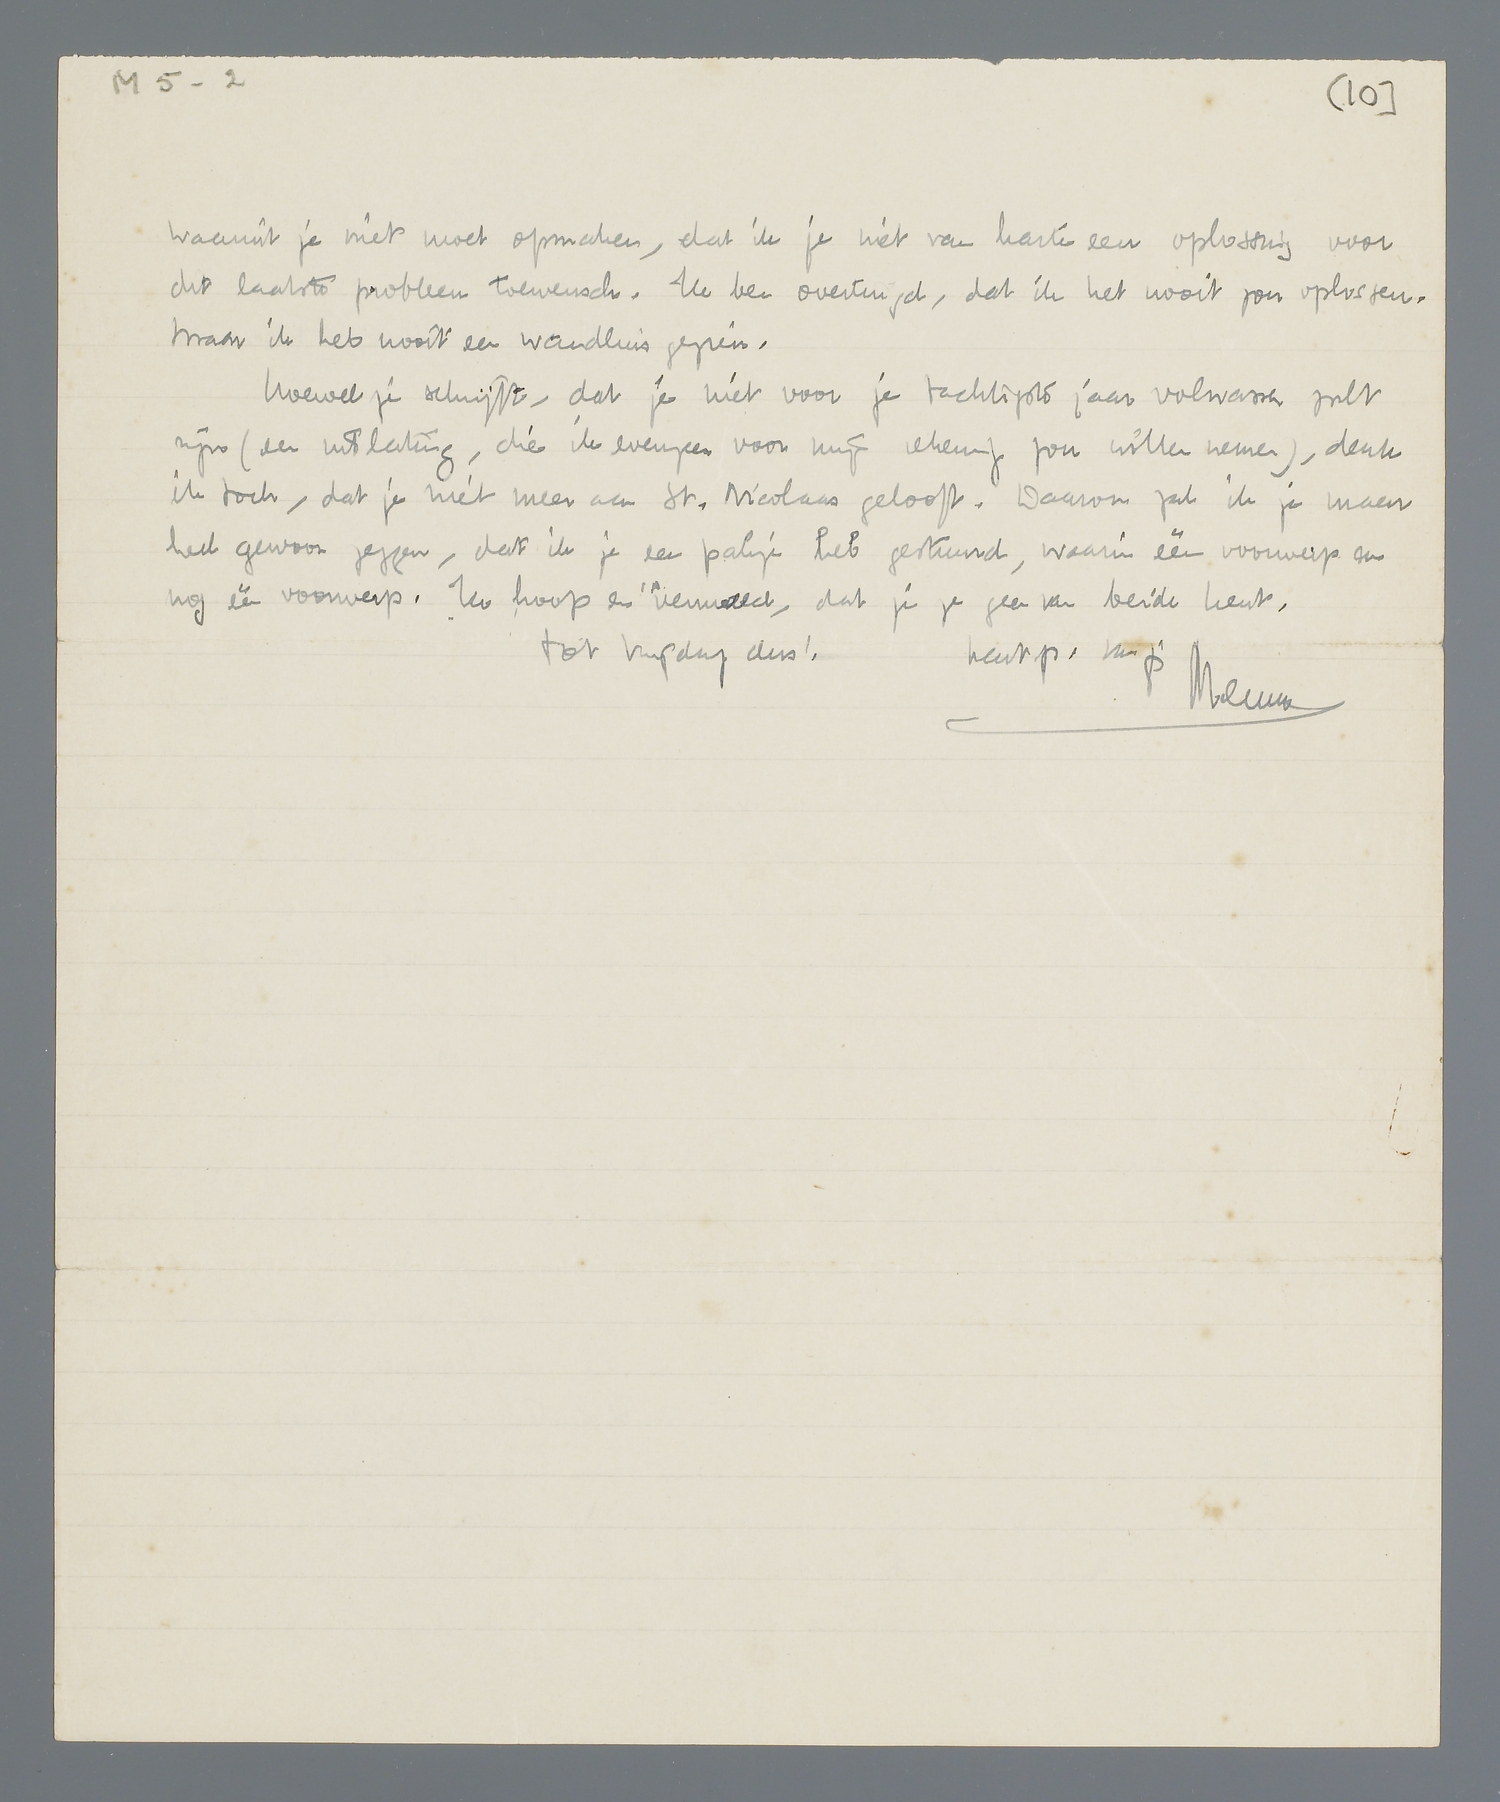 M 5 - 2
(10]
waaruit je niet moet opmaken, dat ik je niet van harte een oplossing voor
dit laatste probleem toewensch. Ik ben overtuigd, dat ik het nooit zou oplossen.
Maar ik heb nooit een wandluis gezien.
Hoewel je schrijft, dat je niet voor je tachtigste jaar volwassen zult
zijn (een uitlating, die ik evenzeer voor mijn rekening zou willen nemen), denk
ik toch, dat je niet meer aan St. Nicolaas gelooft. Daarom zal ik je maar
heel gewoon zeggen, dat ik je een pakje heb gestuurd, waarin één voorwerp en
nog één voorwerp. Ik hoop en vermoed, dat je ze geen van beide kent.
Tot Vrijdag dus! hart. gr. van je
Menno